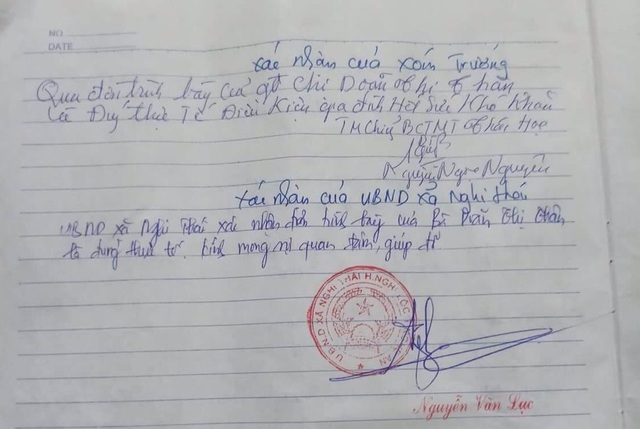 NO
DATE
Xác nhận của xóm Trưởng
Qua đơn trình bày của gđ Chị Doãn Thị Thân
Là Đúng thực Tế Điều Kiện gia đình Hết Sức Khó Khăn
TM Chi uỷ BCTMT Thái Học
Nguyễn Ngọc Nguyên
Xác nhận của UBND xã Nghi Thái
UBND xã Nghi Thái xác nhận đơn trình bày của Bà Thị Thân
là đúng thực tế. Kính mong quan tâm, giúp đỡ
UBND XÃ NGHI THÁI H.NGHI LỘC AN
Nguyễn Văn Dục